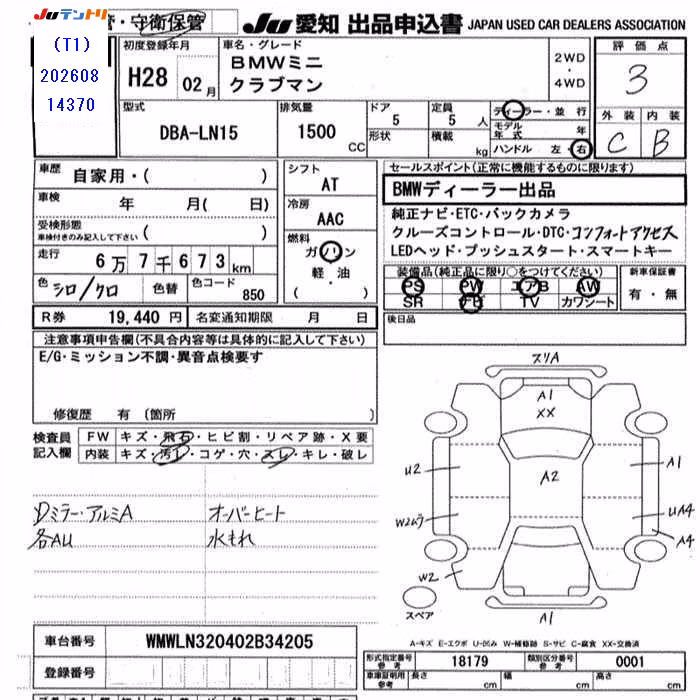 JUテントリ
・守衛保管
JU 愛知 出品申込書 JAPAN USED CAR DEALERS ASSOCIATION
(T1)
202608
14370
初度登録年月
H28 02月
車名・グレード
BMWミニ
クラブマン
2WD
・
4WD
評価点
3
型式
DBA-LN15
排気量
1500 CC
ドア
5
定員
5 人
形状
積載 kg
ディーラー・並行
モデル年式 年
ハンドル 左・右
外装 内装
C B
車歴 自家用・( )
車検 年 月( 日)
受検形態
車検付きのみ記入して下さい ( )
走行 6万7千673km
色 シロ/クロ 色替 色コード 850
シフト
AT
冷房
AAC
燃料
ガソリン
軽・油
( )
R券 19,440円 名変通知期限 月 日
セールスポイント(正常に機能するものに限ります)
BMWディーラー出品
純正ナビ・ETC・バックカメラ
クルーズコントロール・DTC・コンフォートアクセス
LEDヘッド・プッシュスタート・スマートキー
装備品(純正品に限り○をつけてください)
PS PW エアB AW
SR 革B TV カワシート
新車保証書
有・無
後日品
注意事項申告欄(不具合内容等は具体的に記入して下さい)
E/G・ミッション不調・異音点検要す
修復歴 有 (箇所 )
検査員
記入欄
FW キズ・飛石・ヒビ割・リペア跡・X要
内装 キズ・汚レ・コゲ・穴・スレ・キレ・破レ
Dミラー・アルミA
各AU
オーバーヒート
水もれ
スリA
A1
XX
U2
A2
A1
W2ムラ
UA4
A4
W2
スペア
A1
A-キズ E-エクボ U-凹み W-補修跡 S-サビ C-腐食 XX-交換済
車台番号 WMWLN320402B34205
登録番号
形式指定番号
参考
18179
類別区分番号
参考
0001
車庫証明用
参考
長さ cm 幅 cm 高さ cm